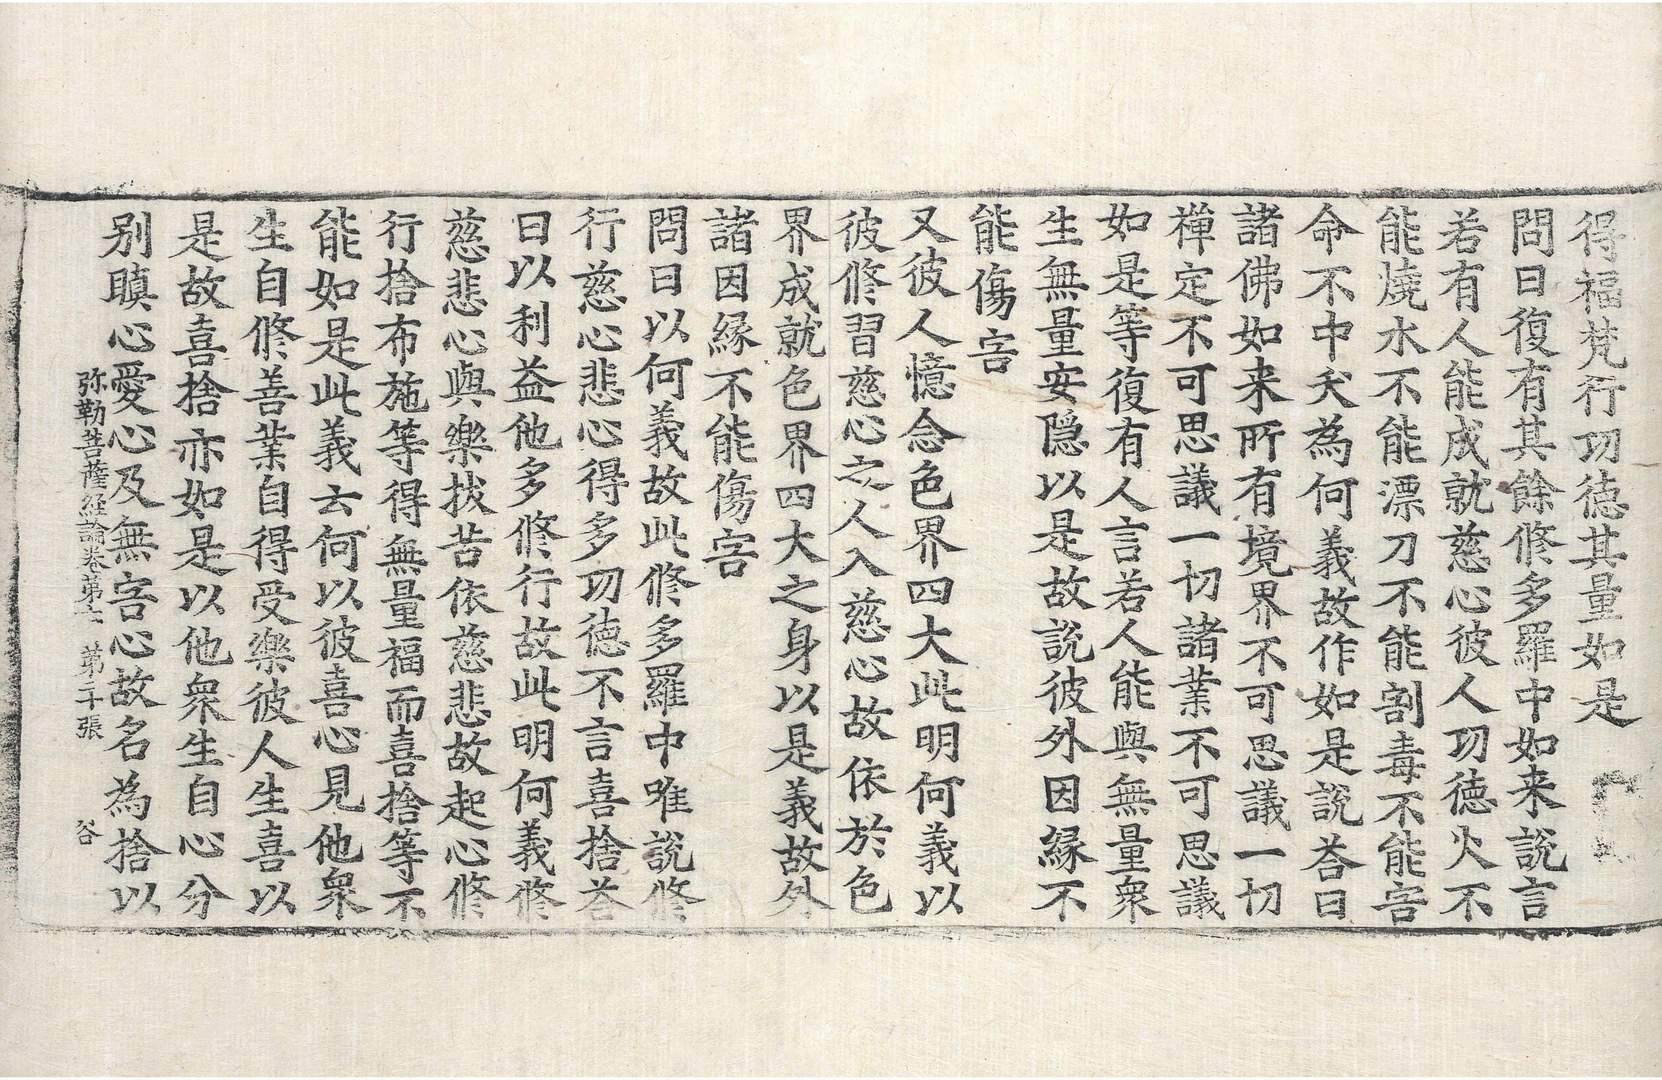 得福梵行功徳其量如是
問曰復有其餘修多羅中如来說言
若有人能成就慈心彼人功徳火不
能燒水不能漂刀不能割毒不能害
命不中夭為何義故作如是說荅曰
諸佛如来所有境界不可思議一切
禪定不可思議一切諸業不可思議
如是等復有人言若人能與無量衆
生無量安隱以是故說彼外因縁不
能傷害
又彼人憶念色界四大此明何義以
彼修習慈心之人入慈心故依於色
界成就色界四大之身以是義故外
諸因縁不能傷害
問曰以何義故此修多羅中唯說修
行慈心悲心得多功徳不言喜捨荅
曰以利益他多修行故此明何義修
慈悲心與樂拔苦依慈悲故起心修
行捨布施等得無量福而喜捨等不
能如是此義云何以彼喜心見他衆
生自修善業自得受樂彼人生喜以
是故喜捨亦如是以他衆生自心分
别瞋心愛心及無害心故名為捨以
弥勒菩薩経論卷苐 苐二十張 谷